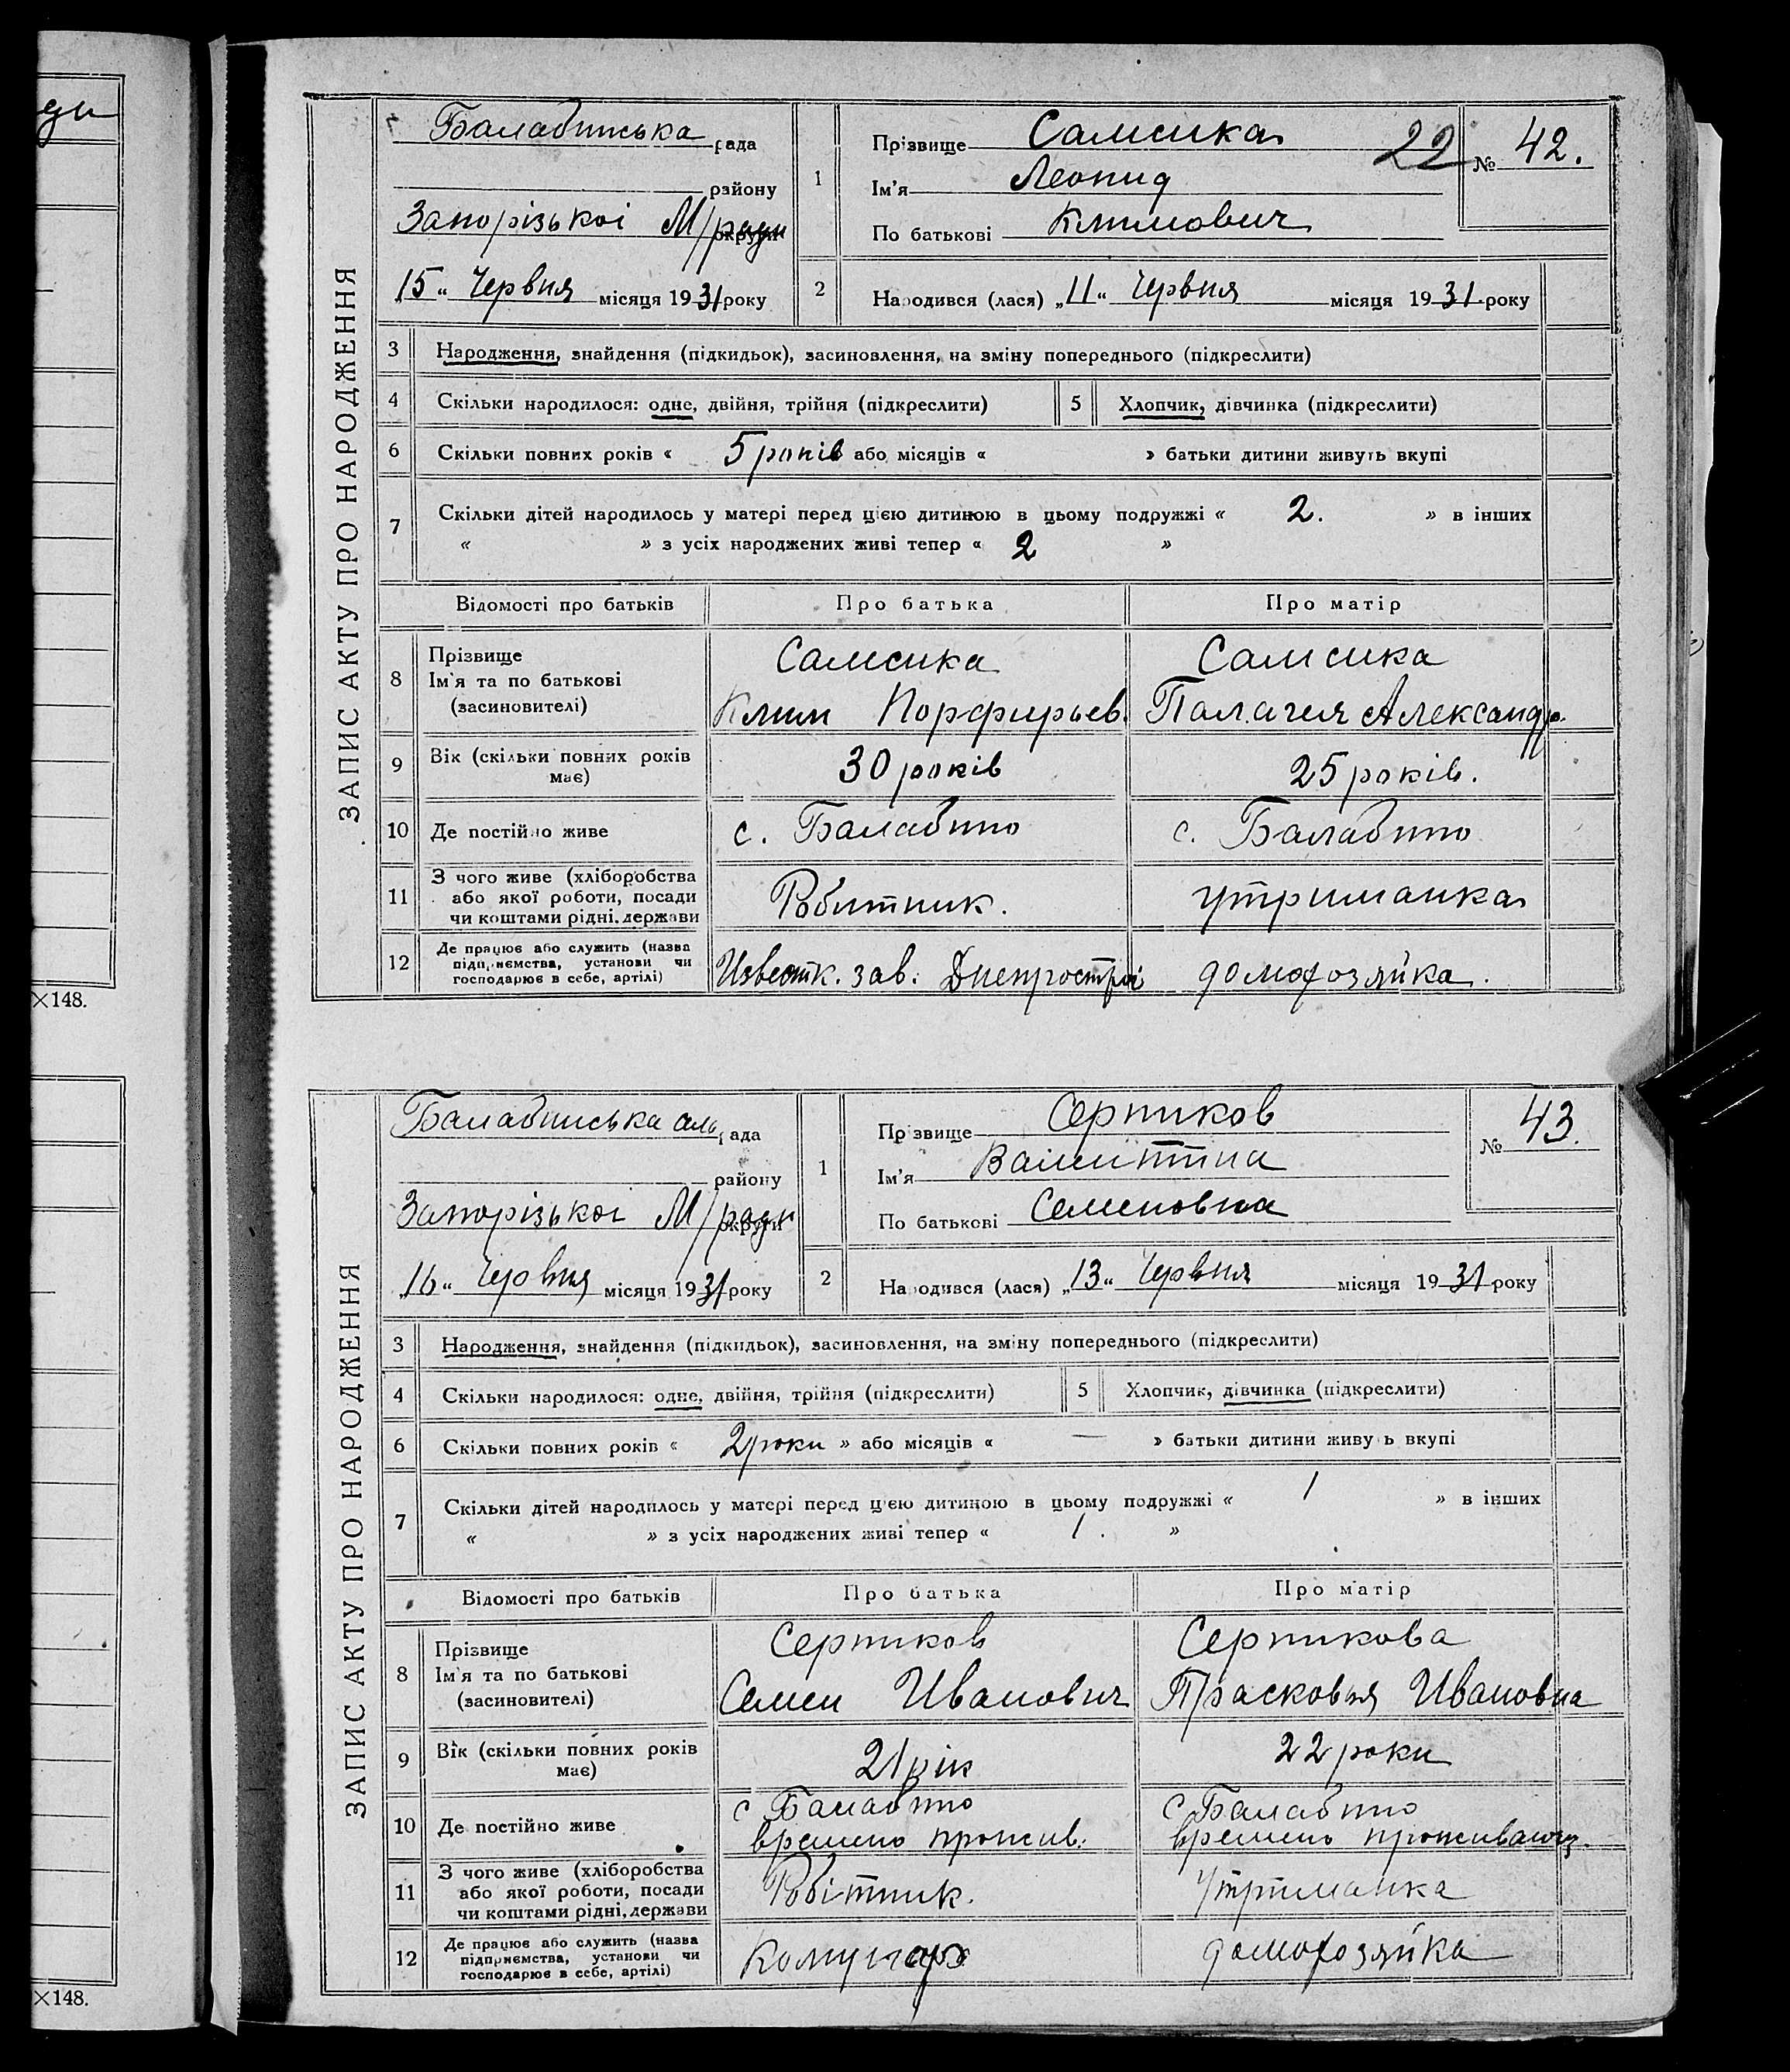 ди
×148.
×148.
ЗАПИС АКТУ ПРО НАРОДЖЕННЯ
Балабинська рада
району
Запорізької М/ради округи
„15“ Червня місяця 1931 року
1
Прізвище Самсика
Ім'я Леонид
По батькові Климович
22
№ 42.
2
Народився (лася) „11“ Червня місяця 1931 року
3 Народження, знайдення (підкидьок), засиновлення, на зміну попереднього (підкреслити)
4 Скільки народилося: одне, двійня, трійня (підкреслити) 5 Хлопчик, дівчинка (підкреслити)
6 Скільки повних років « 5 років або місяців « » батьки дитини живуть вкупі
7 Скільки дітей народилось у матері перед цією дитиною в цьому подружжі « 2. » в інших
« » з усіх народжених живі тепер « 2 »
Відомості про батьків Про батька Про матір
8 Прізвище
Ім'я та по батькові
(засиновителі)
Самсика
Клим Порфирьев.
Самсика
Палагея Александр.
9 Вік (скільки повних років
має)
30 років
25 років.
10 Де постійно живе
с. Балабино
с. Балабино
11 З чого живе (хліборобства
або якої роботи, посади
чи коштами рідні, держави
Робитник.
утриманка
12 Де працює або служить (назва
підприємства, установи чи
господарює в себе, артілі)
Известк. зав. Днепрострої
домохозяйка.
ЗАПИС АКТУ ПРО НАРОДЖЕННЯ
Балабинська рада
району
Запорізької М/ради округи
„16“ Червня місяця 1931 року
1
Прізвище Серпиков
Ім'я
По батькові Семеновна
№ 43.
2
Народився (лася) „13“ Червня місяця 1931 року
3 Народження, знайдення (підкидьок), засиновлення, на зміну попереднього (підкреслити)
4 Скільки народилося: одне, двійня, трійня (підкреслити) 5 Хлопчик, дівчинка (підкреслити)
6 Скільки повних років « 2 роки » або місяців « — » батьки дитини живуть вкупі
7 Скільки дітей народилось у матері перед цією дитиною в цьому подружжі « 1 » в інших
« » з усіх народжених живі тепер « 1. »
Відомості про батьків Про батька Про матір
8 Прізвище
Ім'я та по батькові
(засиновителі)
Серпиков
Семен Иванович
Серпикова
Прасковья Ивановна
9 Вік (скільки повних років
має)
21 рік
22 роки
10 Де постійно живе
с Балабино
времено прожив.
с Балабино
времено проживающ.
11 З чого живе (хліборобства
або якої роботи, посади
чи коштами рідні, держави
Робітник.
Утриманка
12 Де працює або служить (назва
підприємства, установи чи
господарює в себе, артілі)
Комунар
домохозяйка